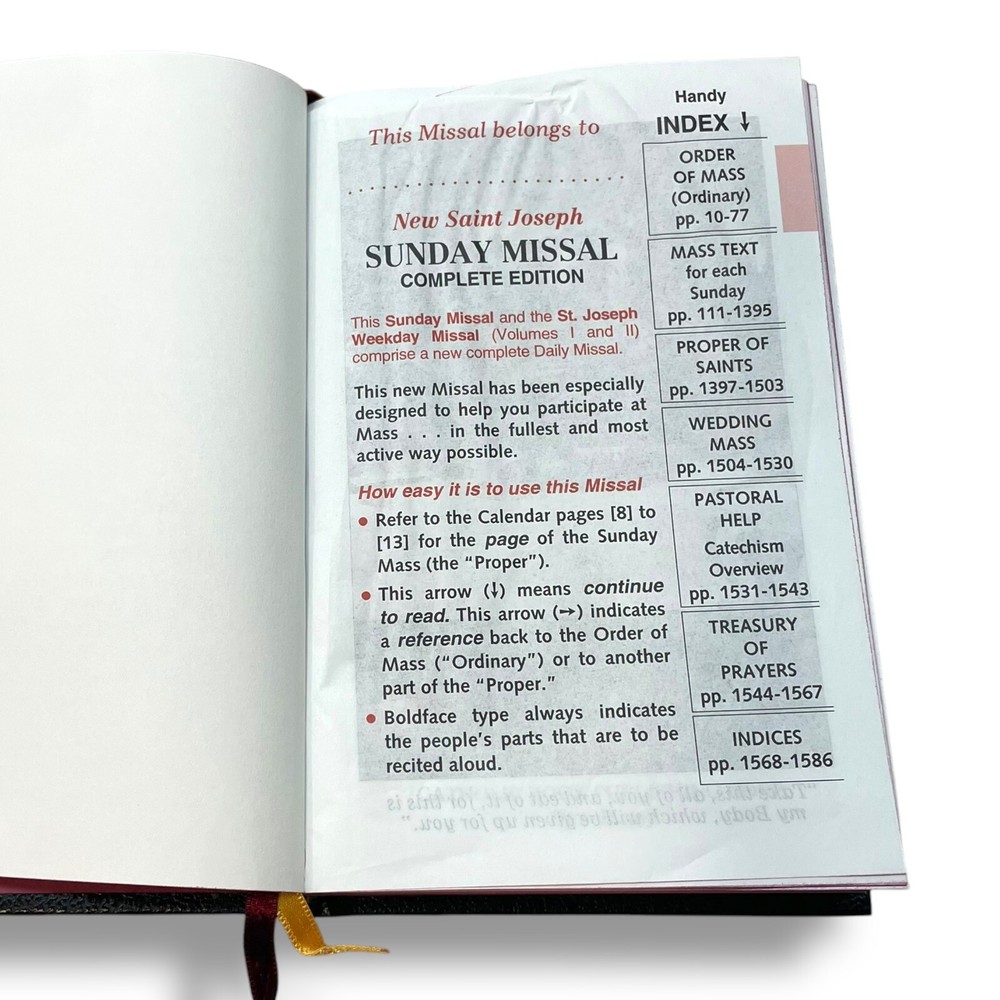 This Missal belongs to
New Saint Joseph
SUNDAY MISSAL
COMPLETE EDITION
This Sunday Missal and the St. Joseph
Weekday Missal (Volumes I and II)
comprise a new complete Daily Missal.
This new Missal has been especially
designed to help you participate at
Mass . . . in the fullest and most
active way possible.
How easy it is to use this Missal
● Refer to the Calendar pages [8] to
[13] for the page of the Sunday
Mass (the “Proper”).
● This arrow (↓) means continue
to read. This arrow (→) indicates
a reference back to the Order of
Mass (“Ordinary”) or to another
part of the “Proper.”
● Boldface type always indicates
the people’s parts that are to be
recited aloud.
Handy
INDEX ↓
ORDER
OF MASS
(Ordinary)
pp. 10-77
MASS TEXT
for each
Sunday
pp. 111-1395
PROPER OF
SAINTS
pp. 1397-1503
WEDDING
MASS
pp. 1504-1530
PASTORAL
HELP
Catechism
Overview
pp. 1531-1543
TREASURY
OF
PRAYERS
pp. 1544-1567
INDICES
pp. 1568-1586
“Take this, all of you, and eat of it, for this is
my Body, which will be given up for you.”